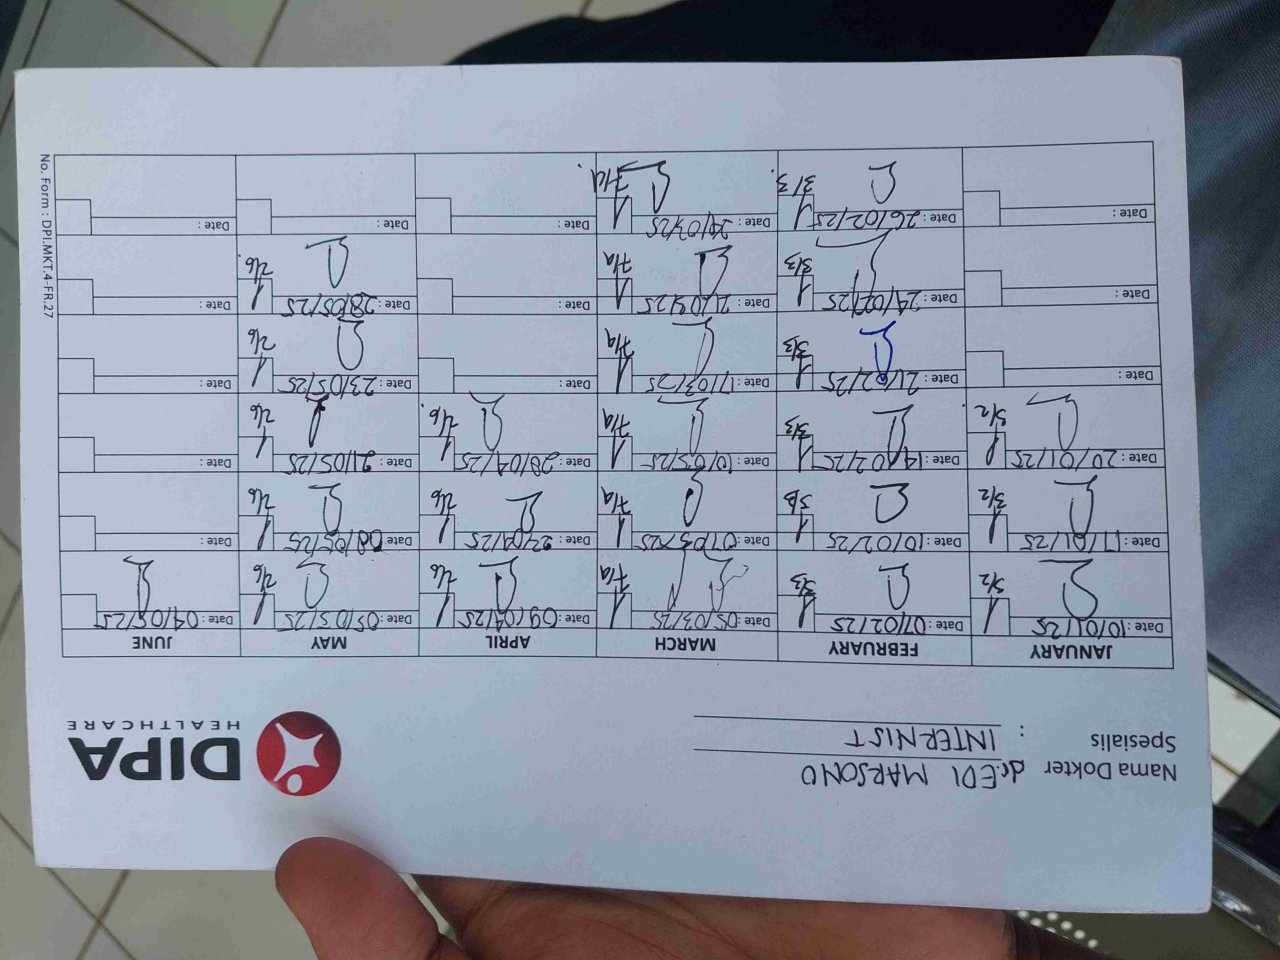 Nama Dokter dr.EDI MARSONO
Spesialis : INTERNIST
DIPA
HEALTHCARE
JANUARY FEBRUARY MARCH APRIL MAY JUNE
Date : 10/01/25 Date : 07/02/25 Date : 05/03/25 Date : 09/04/25 Date : 05/05/25 Date :
3/2 3/3 7/4 2/6 2/6
Date : 17/01/25 Date : 10/02/25 Date : 07/03/25 Date : 23/04/25 Date : 08/05/25 Date :
3/2 3/3 7/4 2/6 2/6
Date : 20/01/25 Date : 14/02/25 Date : 10/03/25 Date : 28/04/25 Date : 21/05/25 Date :
3/2 3/3 7/4 2/6 2/6
Date : Date : 21/02/25 Date : 17/03/25 Date : Date : 23/05/25 Date :
3/3 7/4 2/6
Date : Date : 24/02/25 Date : 21/03/25 Date : Date : 28/05/25 Date :
3/3 7/4 2/6
Date : Date : 26/02/25 Date : 24/03/25 Date : Date : Date :
3/3 7/4
No. Form : DPI.MKT.4-FR.27